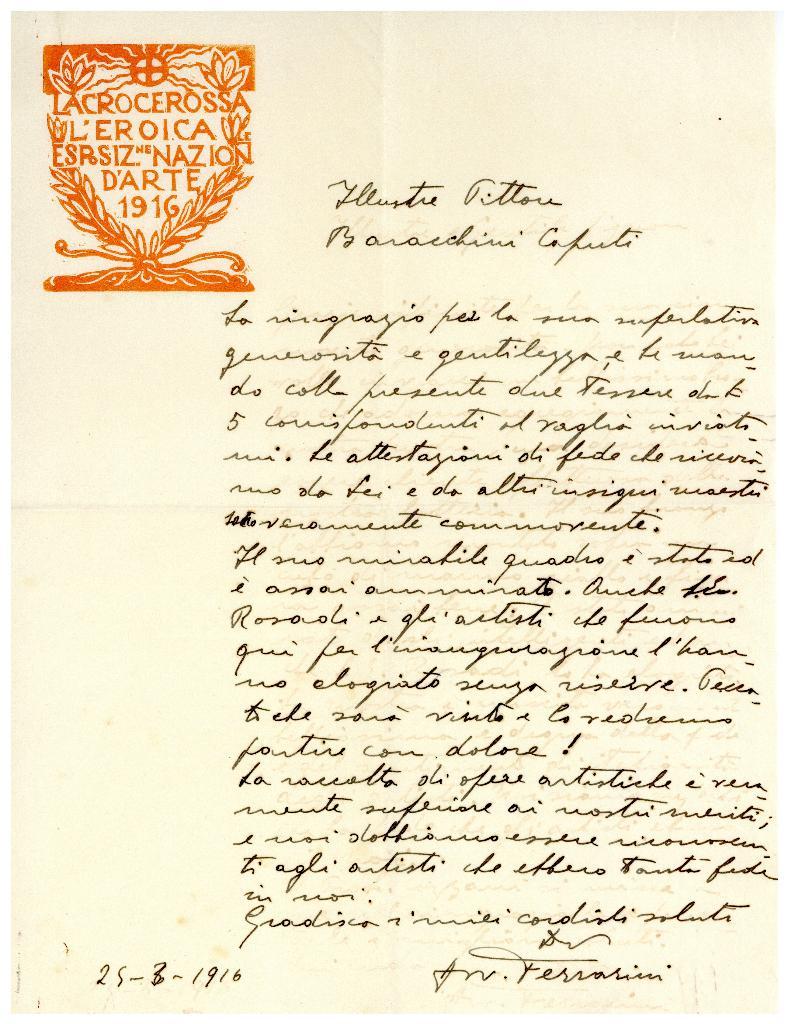 LA CROCE ROSSA
L'EROICA
E ESPSIZNE NAZION LE
D'ARTE
1916
Illustre Pittore
Baracchini Caputi
La ringrazio per la sua superlativa
generosità e gentilezza, e le man-
do colla presente due Tessere da £
5 corrispondenti al vaglia inviato-
mi. Le attestazioni di fede che ricevia-
mo da Lei e da altri insigni maestri
sono veramente commovente.
Il suo mirabile quadro è stato ed
è assai ammirato. Anche S.E.
Rosadi e gli artisti che furono
quì per l'inaugurazione l'han-
no elogiato senza riserve. Pecca-
to che sarà vinto e lo vedremo
partire con dolore!
La raccolta di opere artistiche è vera-
mente superiore ai nostri meriti;
e noi dobbiamo essere riconoscen-
ti agli artisti che ebbero tanta fede
in noi.
Gradisca i miei cordiali saluti
Avv. Ferrarini
25-3-1916